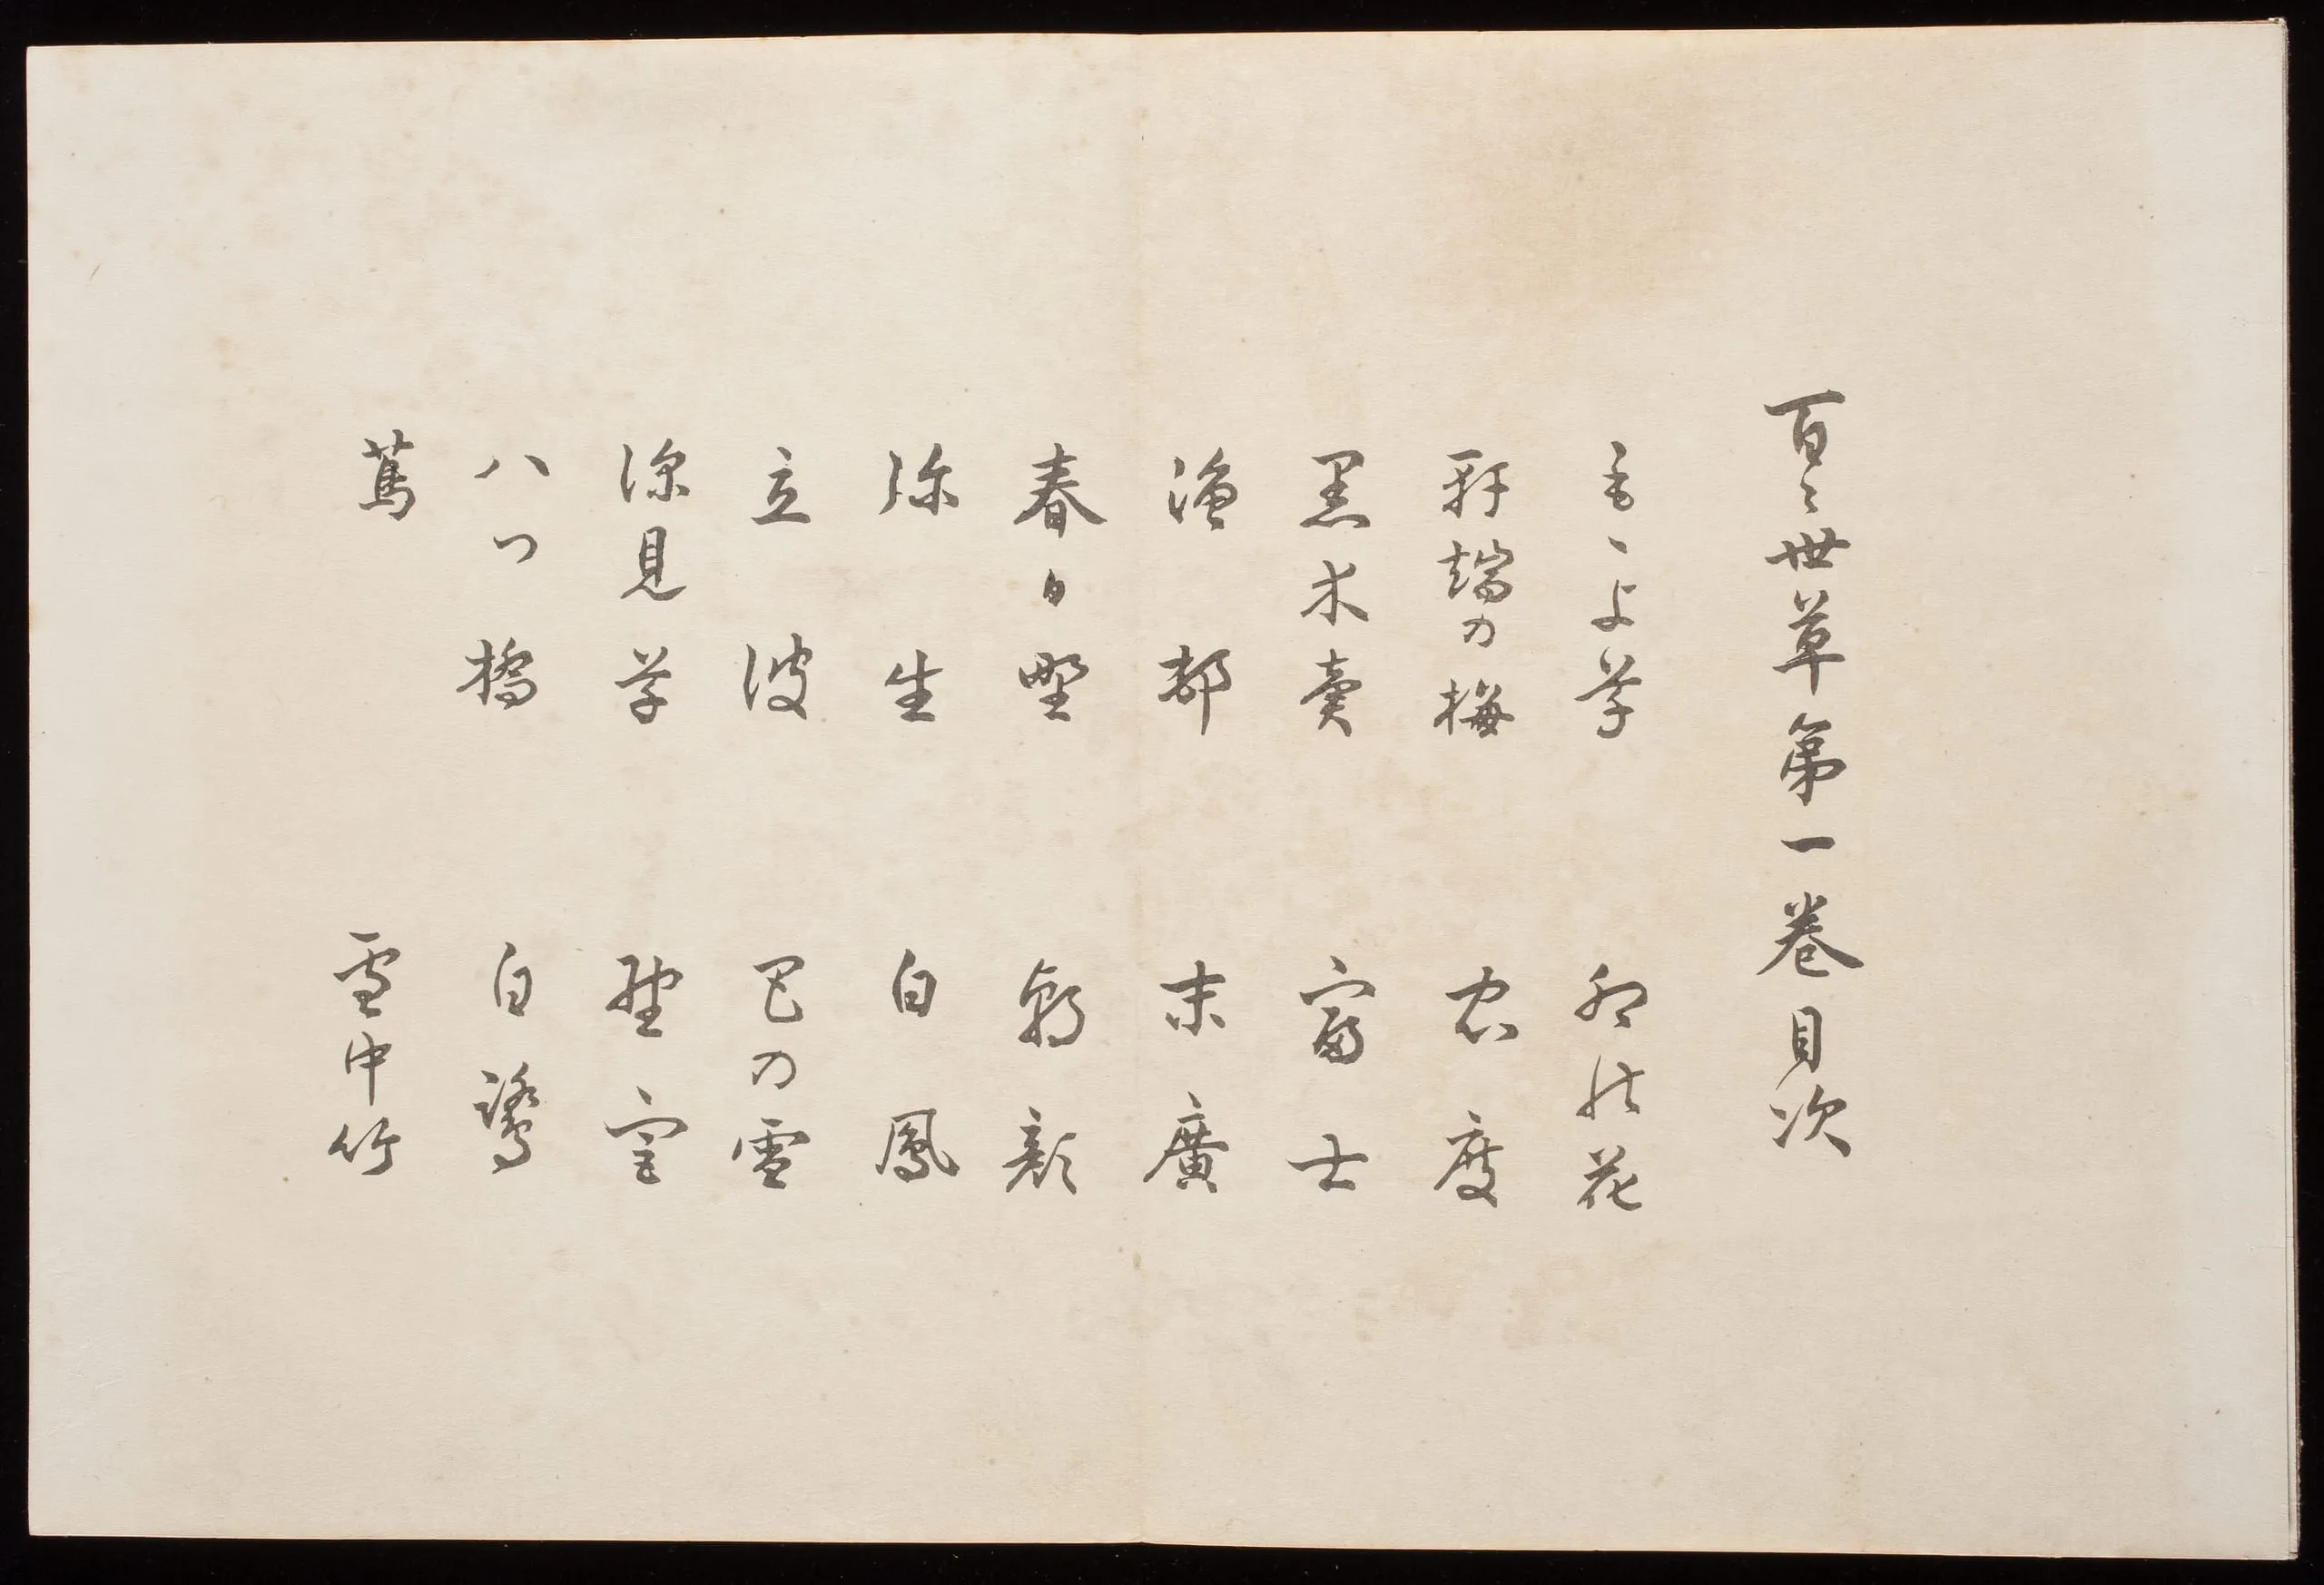 百〻世草第一卷目次
もゝよ草
卯の花
軒端の梅
忠度
黒木賣
富士
末廣
春日野
朝顔
弥生
白鳳
立波
巴の雪
深見草
野宮
八つ橋
白鷺
蔦
雪中竹